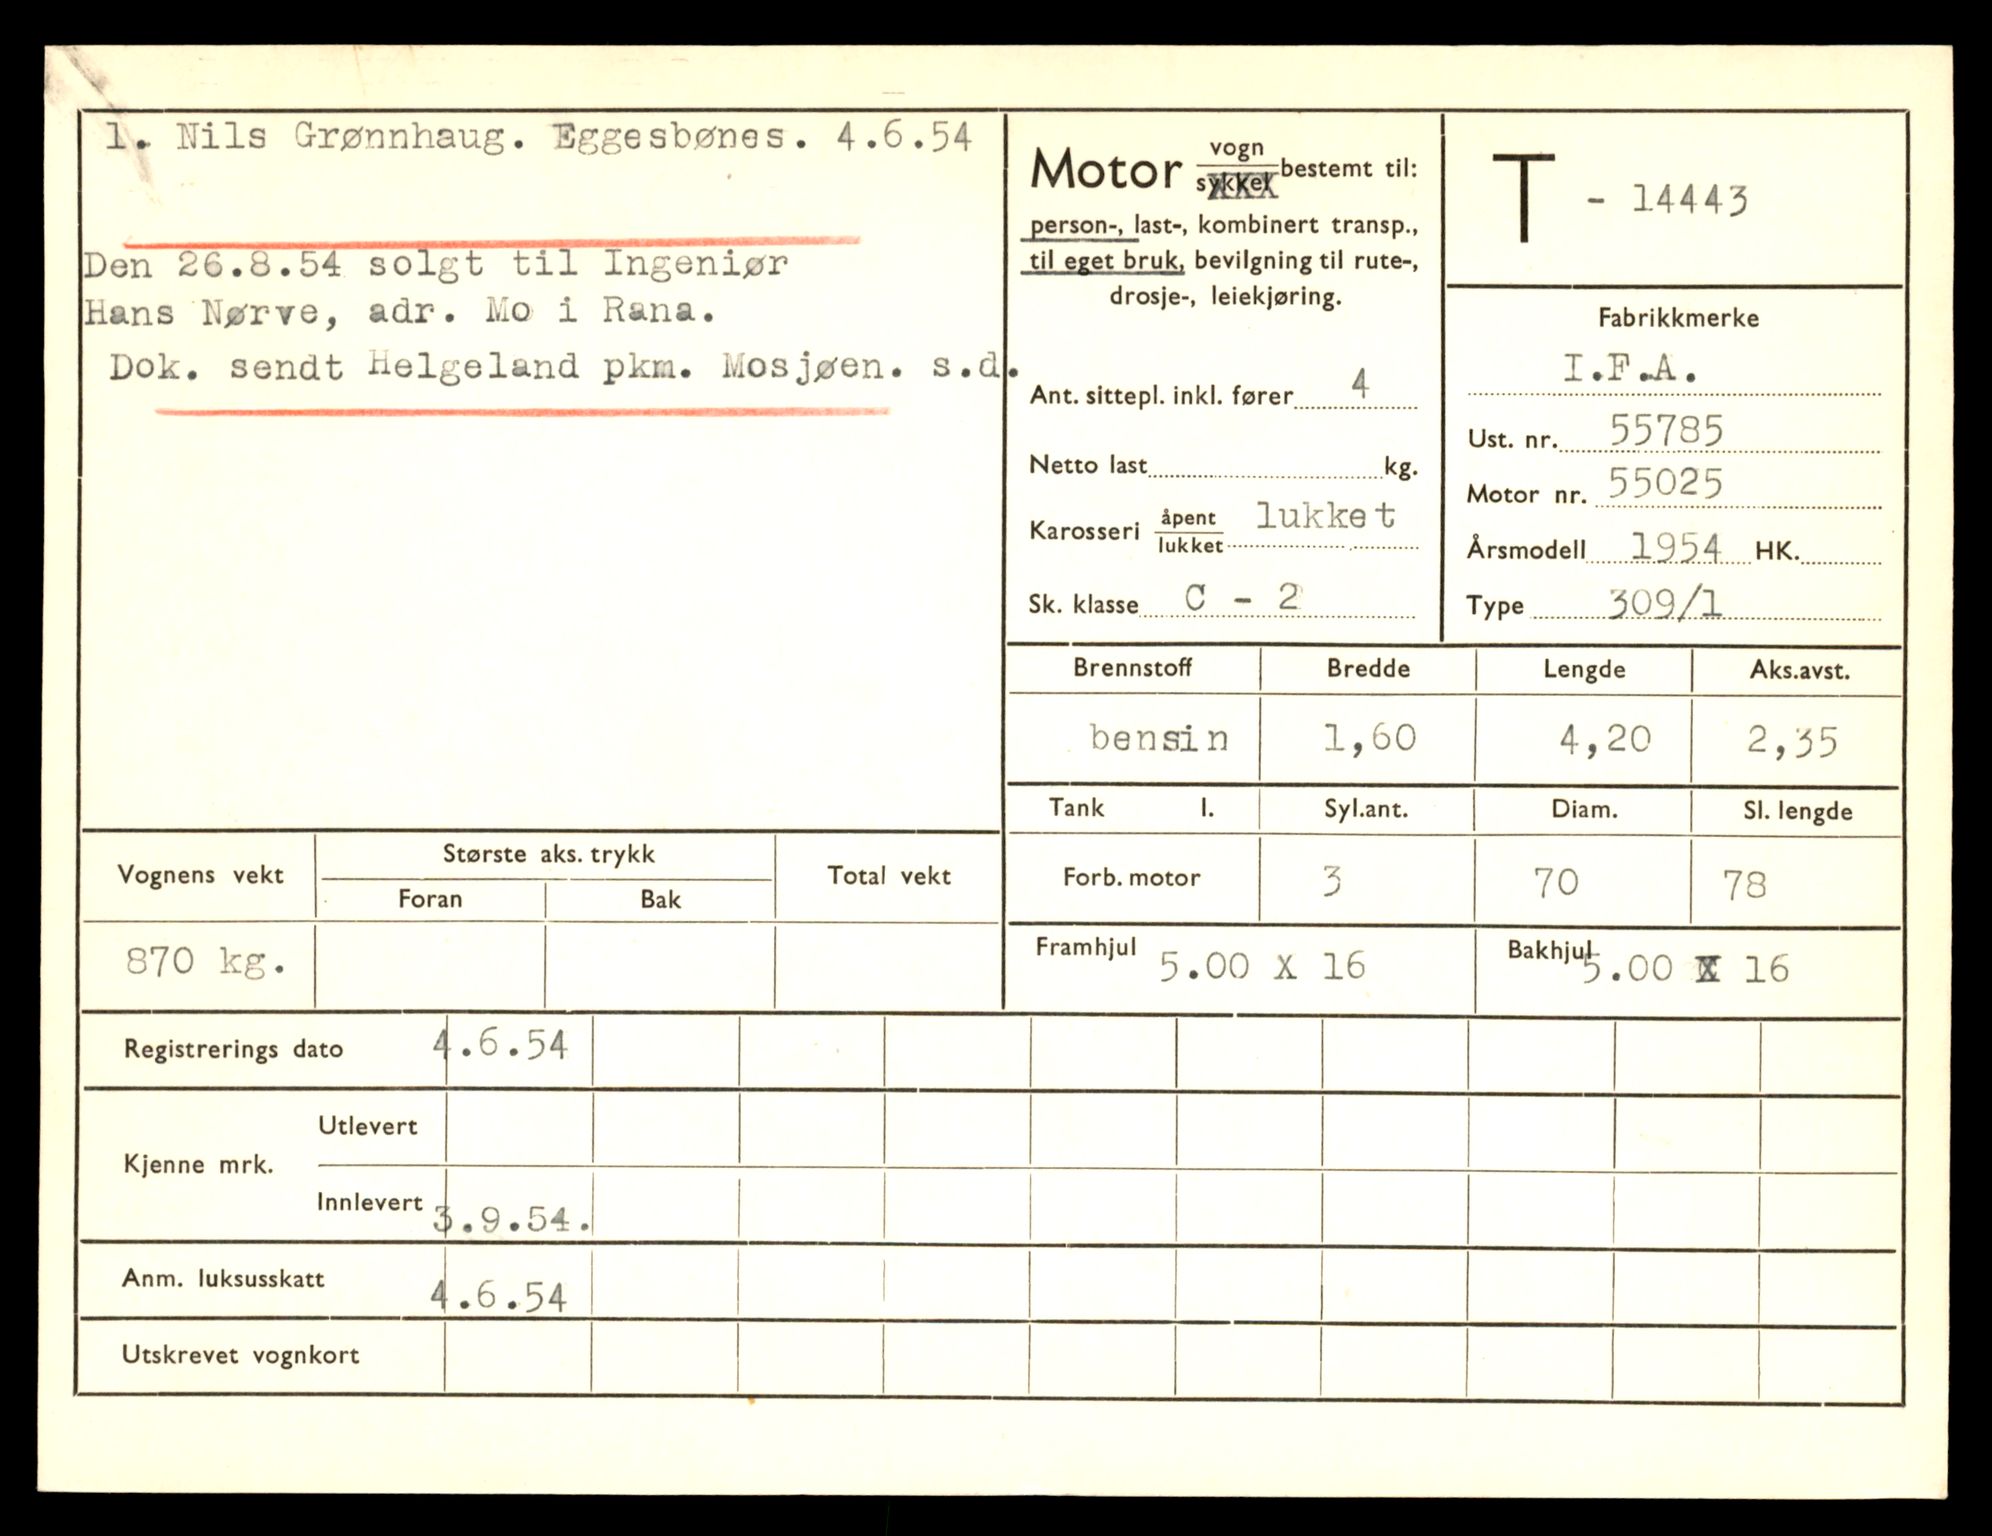 1. Nils Grønnhaug. Eggesbønes. 4.6.54
Den 26.8.54 solgt til Ingeniør
Hans Nørve, adr. Mo i Rana.
Dok. sendt Helgeland pkm. Mosjøen. s.d.
Motor vogn bestemt til:
sykkel
person-, last-, kombinert transp.,
til eget bruk, bevilgning til rute-,
drosje-, leiekjøring.
Ant. sittepl. inkl. fører 4
Netto last kg.
Karosseri åpent lukket
lukket
Sk. klasse C - 2
T - 14443
Fabrikkmerke
I.F.A.
Ust. nr. 55785
Motor nr. 55025
Årsmodell 1954 HK.
Type 309/1
Brennstoff Bredde Lengde Aks.avst.
bensin 1,60 4,20 2,35
Tank l. Syl.ant. Diam. Sl. lengde
Forb. motor 3 70 78
Framhjul 5.00 X 16 Bakhjul 5.00 X 16
Vognens vekt Største aks. trykk Total vekt
Foran Bak
870 kg.
Registrerings dato 4.6.54
Kjenne mrk. Utlevert
Innlevert 3.9.54.
Anm. luksusskatt 4.6.54
Utskrevet vognkort